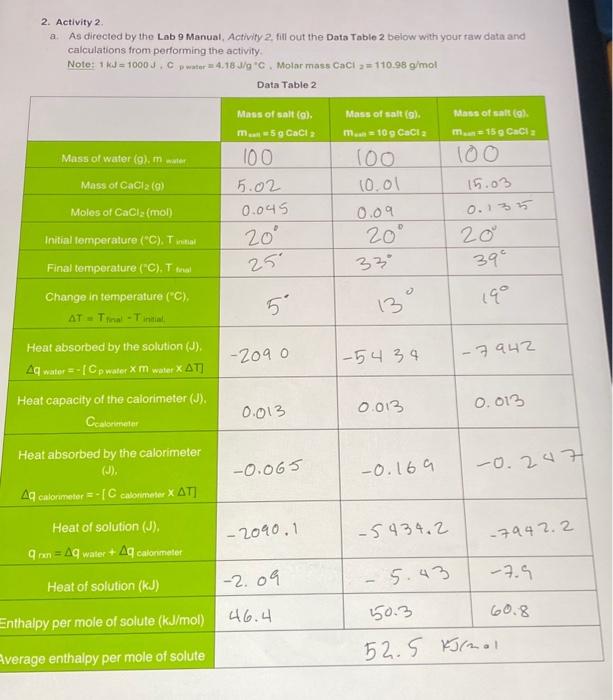 2. Activity 2.
a. As directed by the Lab 9 Manual, Activity 2, fill out the Data Table 2 below with your raw data and
calculations from performing the activity.
Note: 1 kJ = 1000 J , C p water = 4.18 J/g °C , Molar mass CaCl 2 = 110.98 g/mol
Data Table 2
Mass of salt (g), m salt = 5 g CaCl 2
Mass of salt (g), m salt = 10 g CaCl 2
Mass of salt (g), m salt = 15 g CaCl 2
Mass of water (g), m water 100 100 100
Mass of CaCl2 (g) 5.02 10.01 15.03
Moles of CaCl2 (mol) 0.045 0.09 0.135
Initial temperature (°C), T initial 20° 20° 20°
Final temperature (°C), T final 25° 33° 39°
Change in temperature (°C),
ΔT = T final - T initial, 5° 13° 19°
Heat absorbed by the solution (J),
Δq water = - [ C p water x m water x ΔT] -2090 -5434 -7942
Heat capacity of the calorimeter (J),
Ccalorimeter 0.013 0.013 0.013
Heat absorbed by the calorimeter
(J),
Δq calorimeter = - [ C calorimeter x ΔT] -0.065 -0.169 -0.247
Heat of solution (J),
q rxn = Δq water + Δq calorimeter -2090.1 -5434.2 -7942.2
Heat of solution (kJ) -2.09 -5.43 -7.9
Enthalpy per mole of solute (kJ/mol) 46.4 50.3 60.8
Average enthalpy per mole of solute 52.5 KJ/mol